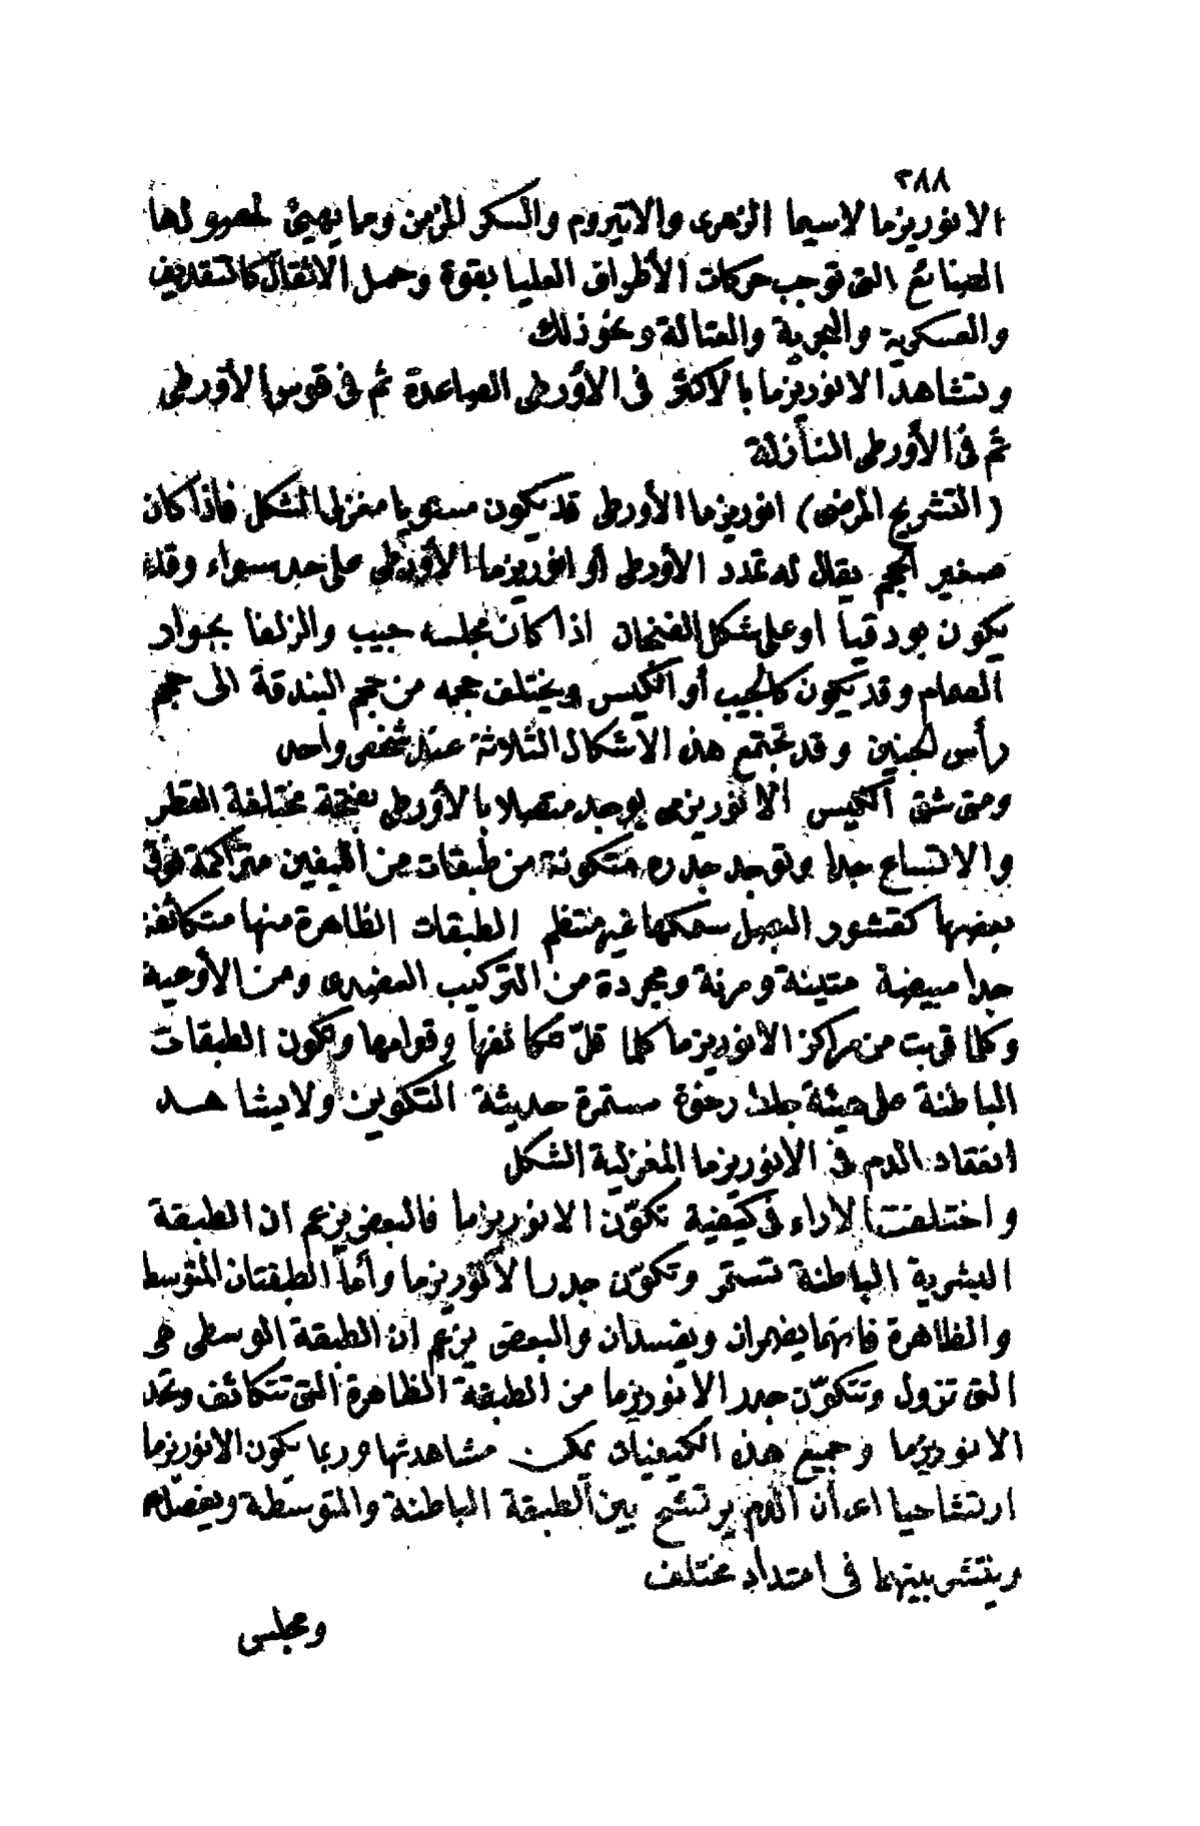 ٢٨٨
الانوريزما لاسيما الزهرى والاتيروم والسكر المزمن ومما يهيئ لحصولها
الصنائع التى توجب حركات الأطراف العليا بقوة وحمل الاثقال كالتقديف
والعسكرية والبحرية والعتالة ونحو ذلك
وتشاهد الانوريزما بالاكثر فى الأورطى الصاعدة ثم فى قوس الأورطى
ثم فى الأورطى النازلة
(التشريح المرضى) انوريزما الأورطى قد يكون مستويا مغزلى الشكل فاذا كان
صغير الحجم يقال له تمدد الأورطى أو انوريزما الأورطى على حد سواء وقد
يكون بودقيا او على شكل الفنجان اذا كان مجلسه جيب والزلفا بجوار
الصمام وقد يكون كالجيب أو الكيس ويختلف حجمه من حجم البندقة الى حجم
رأس الجنين وقد تجتمع هذه الاشكال الثلاثة عند شخص واحد
ومتى شق الكيس الانوريزمى يوجد متصلا بالأورطى بفتحة مختلفة القطر
والاتساع جدا وتوجد جدره متكونة من طبقات من الليفين متراكمة فوق
بعضها كقشور البصل سمكها غير منتظم الطبقات الظاهرة منها متكاثفة
جدا مبيضة متينة ومرنة ومجردة من التركيب العضوى ومن الأوعية
وكلما قربت من مراكز الانوريزما كلما قلّ تكاثفها وقوامها وتكون الطبقات
الباطنة على هيئة جلط رخوة مستمرة حديثة التكوين ولا يشاهـــد
انعقاد الدم فى الانوريزما المغزلية الشكل
واختلفت الاراء فى كيفية تكوّن الانوريزما فالبعض يزعم ان الطبقة
البشرية الباطنة تستمر وتكوّن جدر الانوريزما وأما الطبقتان المتوسط
والظاهرة فانهما يضمران ويفسدان والبعض يزعم ان الطبقة الوسطى هى
التى تزول وتتكوّن جدر الانوريزما من الطبقة الظاهرة التى تتكاثف وتحد
الانوريزما وجميع هذه الكيفيات يمكن مشاهدتها وربما يكون الانوريزما
ارتشاحيا اى أن الدم يرتشح بين الطبقة الباطنة والمتوسطة ويفصلهم
وينتشر بينهما فى امتداد مختلف
ومجلس